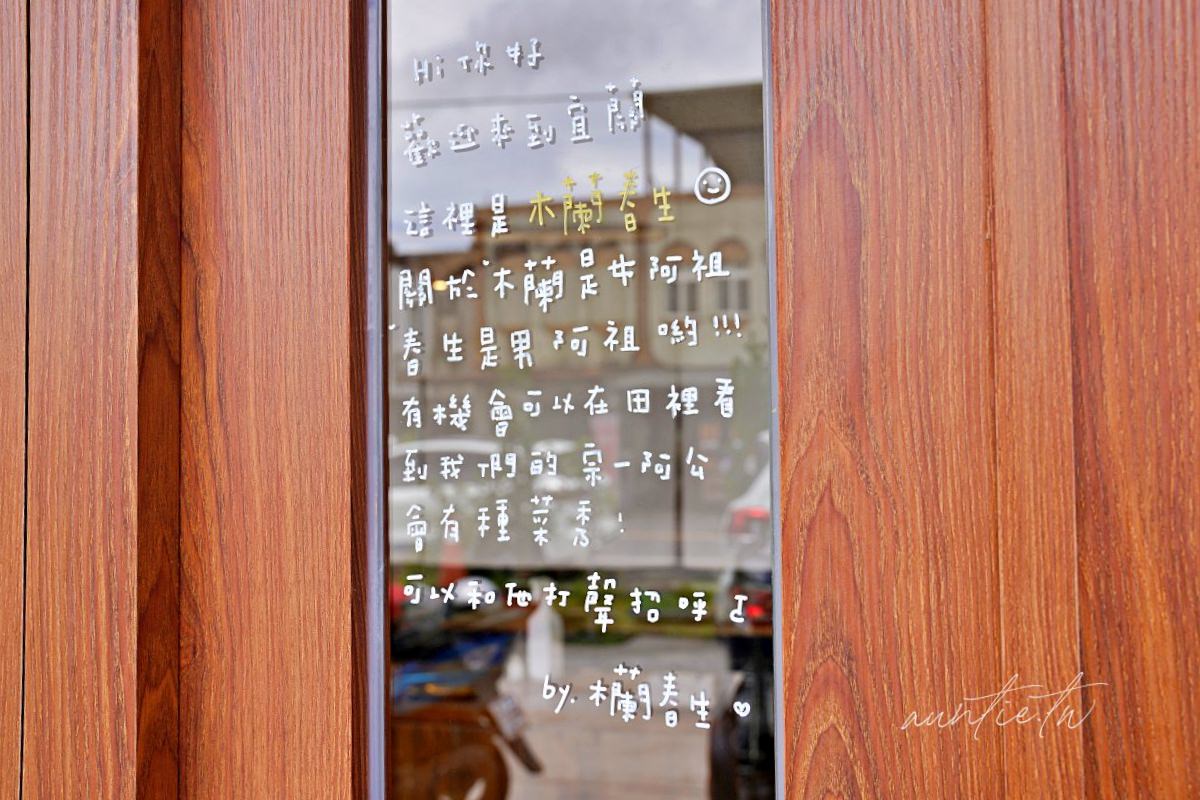 Hi 你好
歡迎來到宜蘭
這裡是木蘭春生
關於木蘭是女阿祖
春生是男阿祖喲!!!
有機會可以在田裡看
到我們的宗一阿公
會有種菜秀!
可以和他打聲招呼
by. 木蘭春生
auntie.tw